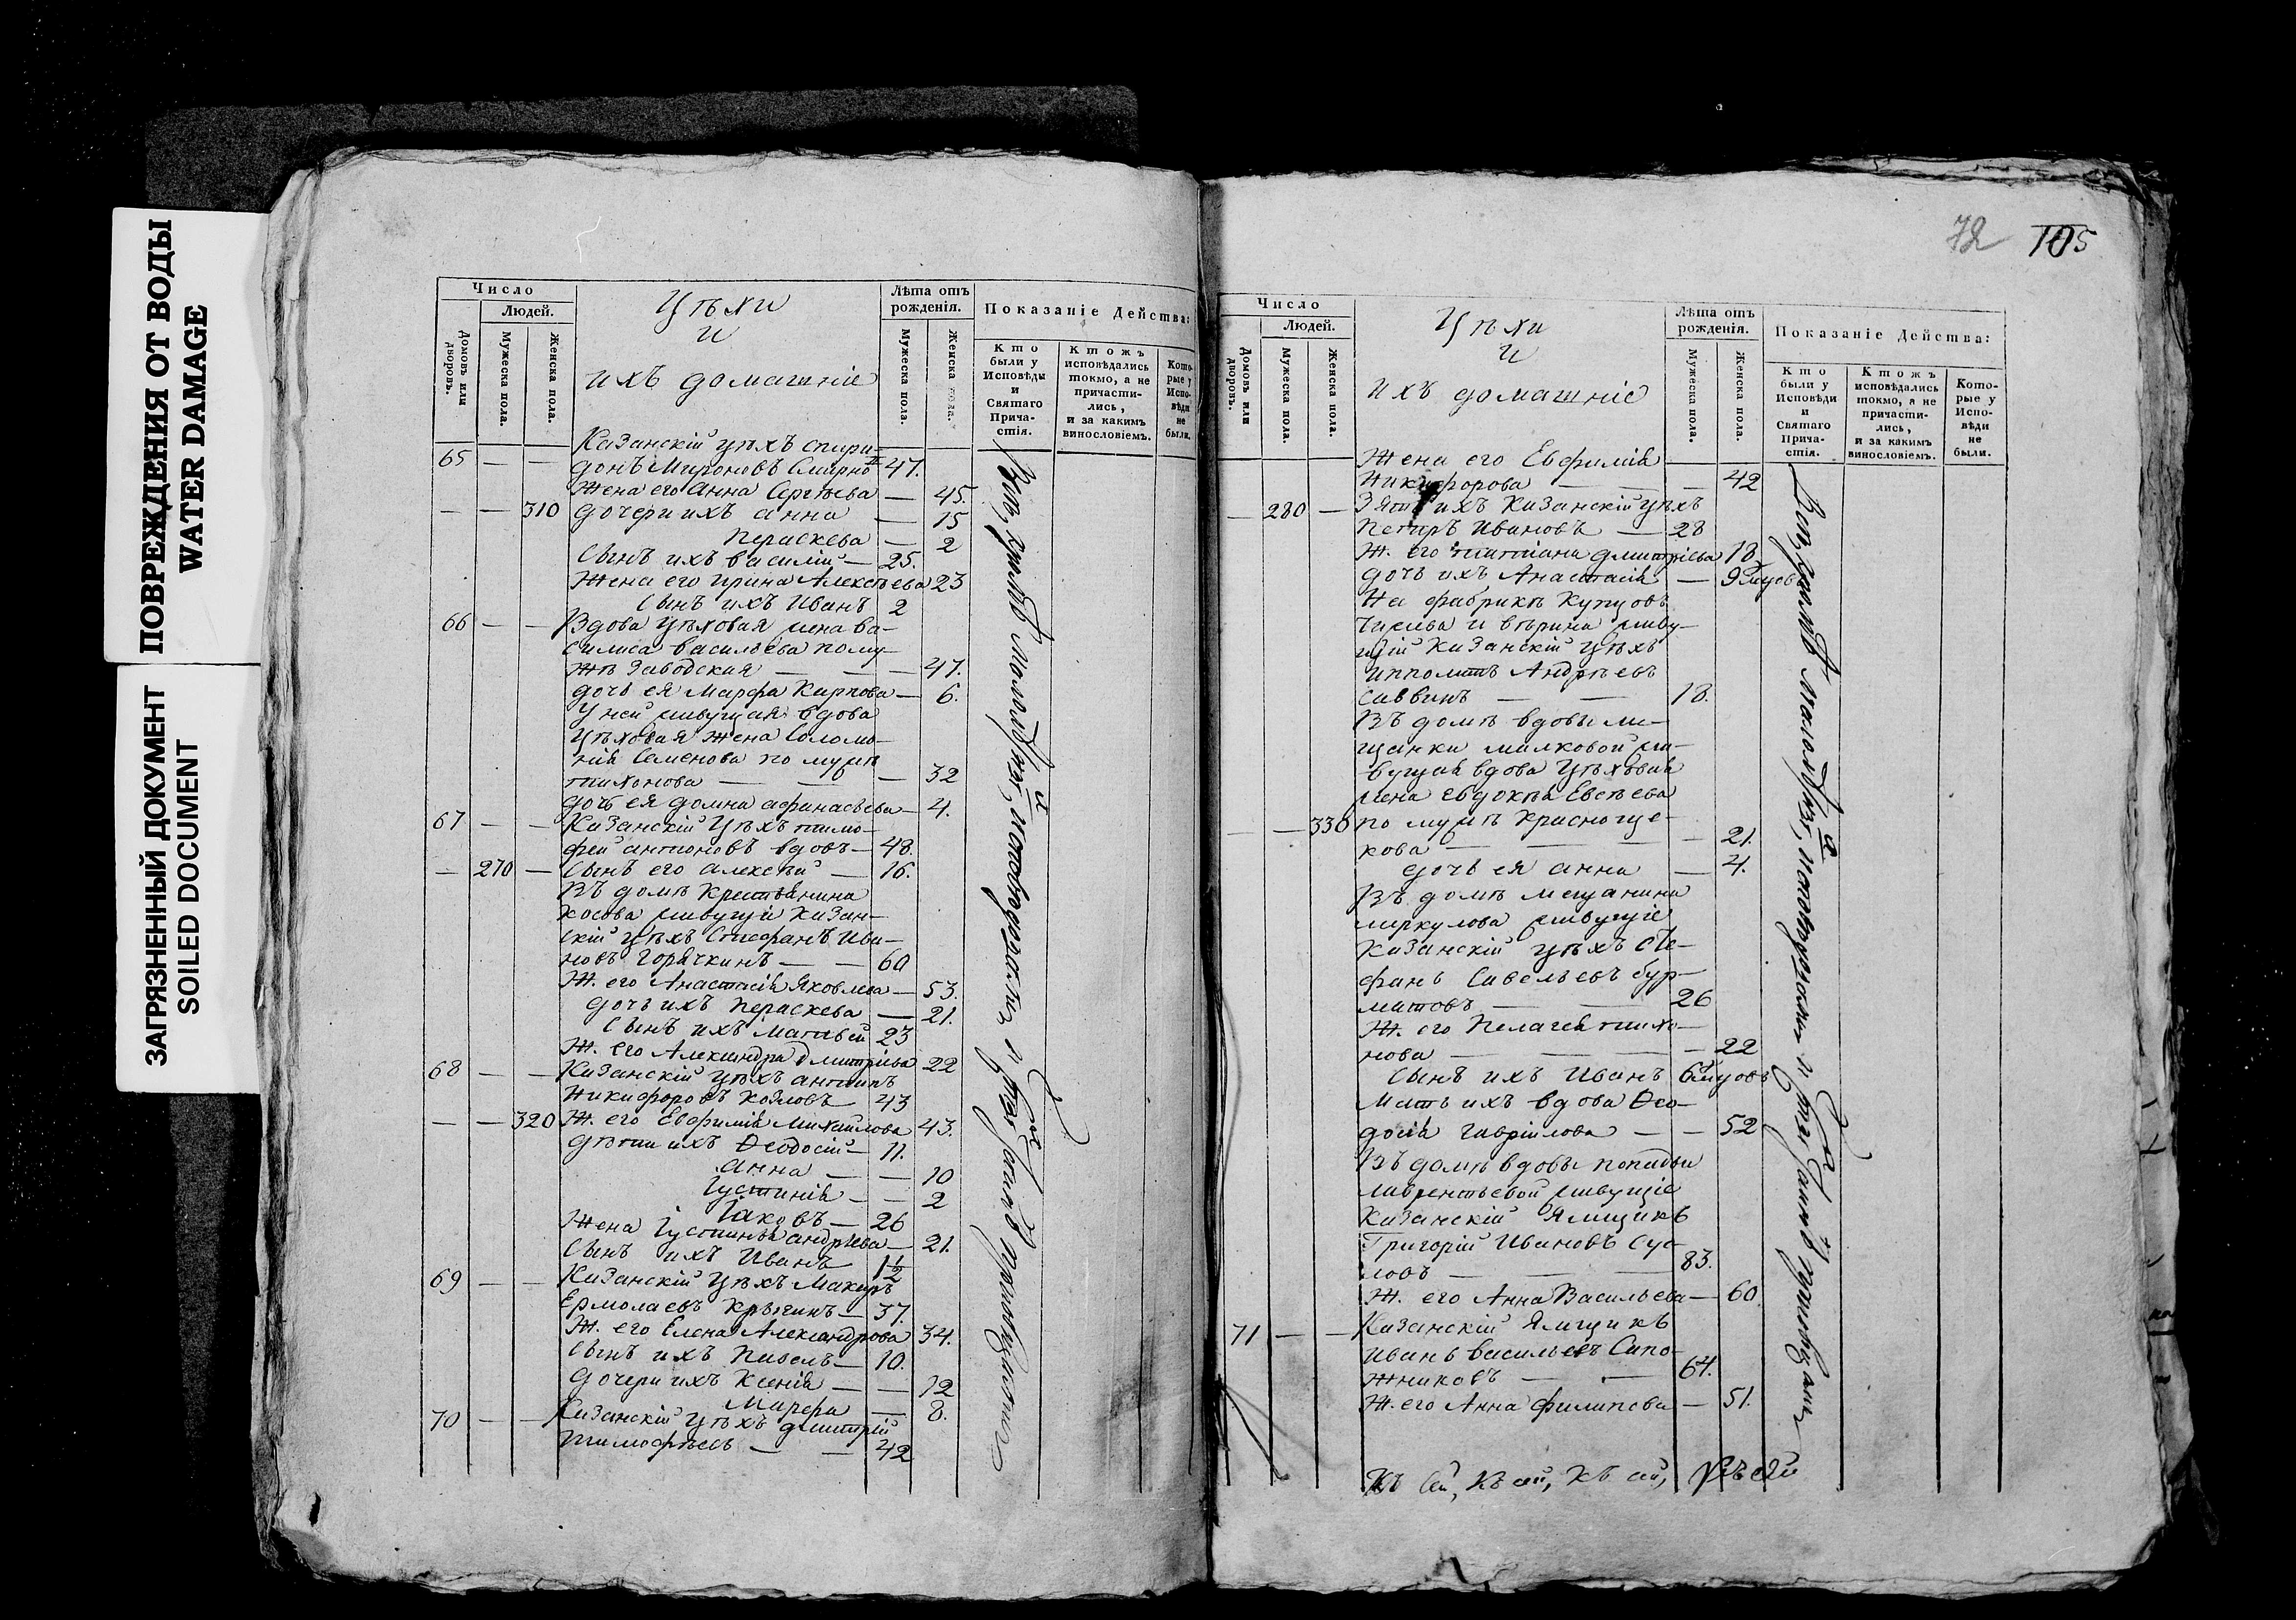 ПОВРЕЖДЕНИЯ ОТ ВОДЫ
WATER DAMAGE
ЗАГРЯЗНЕННЫЙ ДОКУМЕНТ
SOILED DOCUMENT
Число
Людей.
Домовъ или дворовъ.
Мужеска пола.
Женска пола.
Цѣхи
и
ихъ домашніе
Лѣта отъ рожденія.
Мужеска пола.
Женска пола.
Показаніе Действа:
Кто были у Исповѣди и Святаго Прича-стія.
Ктожъ исповѣдались токмо, а не причасти-лись, и за какимъ винословіемъ.
Кото-рые у Испо-вѣди не были.
65 — — Казанскій цѣхъ Спири-
донъ Мироновъ Смирно 47.
Жена его Анна Сергѣева — 45.
— — 310 Дочери ихъ Анна — 15
Параскева — 2
Сынъ ихъ Василій — 25.
Жена его Ирина Алексѣева 23
Сынъ ихъ Иванъ 2
66 — — Вдова цѣховая жена Ва-
силиса Васильева по му-
жѣ Заводская — — 47.
Дочь ея Марфа Карпова — 6.
У ней живущая вдова
цѣховая жена Соломо-
нія Семенова по мужѣ
Тихонова — — — 32
Дочь ея Домна Афанасьева — 4.
67 — — Казанскій цѣхъ Тимо-
фей Антоновъ вдовъ — 48.
— 270 — Сынъ его Алексѣй — 16.
Въ домѣ крестьянина
Косова живущіе Казан-
скій цѣхъ Стефанъ Ива-
новъ Горячкинъ — — 60
Ж. его Анастасія Яковлева — 53.
Дочь ихъ Параскева — 21.
Сынъ ихъ Матвей 23
Ж. его Александра Дмитріева 22
68 — — Казанскій цѣхъ Антипъ
Никифоровъ Козловъ 43
— — 320 Ж. его Евфимія Михайлова 43.
Дѣти ихъ Ѳеодосій — 11.
Анна — — 10
Іустинія — — 2
Іаковъ — 26
Жена Іустинья Андрѣева — 21.
Сынъ ихъ Иванъ 1½
69 — — Казанскій цѣхъ Макаръ
Ермолаевъ — 37.
Ж. его Елена Александрова 34.
Сынъ ихъ Павелъ — 10.
Дочери ихъ Ксенія — — 12
Марфа — 8.
70 — — Казанскій цѣхъ Дмитрій
Тимофѣевъ — — 42
72 105
Число
Людей.
Домовъ или дворовъ.
Мужеска пола.
Женска пола.
Цѣхи
и
ихъ домашніе
Лѣта отъ рожденія.
Мужеска пола.
Женска пола.
Показаніе Действа:
Кто были у Исповѣди и Святаго Прича-стія.
Ктожъ исповѣдались токмо, а не причасти-лись, и за какимъ винословіемъ.
Кото-рые у Испо-вѣди не были.
Жена его Евфимія
Никифорова — — 42
— 280 — Зять ихъ Казанскій цѣхъ
Петръ Ивановъ — 28
Ж. его Татіана Дмитріева 18.
Дочь ихъ Анастасія — 9
На фабрикѣ купцовъ
живу-
щій Казанскій цѣхъ
Ипполитъ Андрѣевъ
Саввинъ — — 18.
Въ домѣ вдовы мѣ-
щанки Милковой жи-
вущая вдова цѣховая
жена Евдокѣя Евсѣева
— — 330 по мужѣ Красноще-
кова — — — 21.
Дочь ея Анна — 4.
Въ домѣ мещанина
Меркулова живущіе
Казанскій цѣхъ Сте-
фанъ Савельевъ Бур-
матовъ — — 26
Ж. его Пелагея Тихо-
нова — — — 22
Сынъ ихъ Иванъ 6
Мать ихъ вдова Ѳео-
досія Гавріилова — — 52
Въ домѣ вдовы попадьи
Лаврентьевой живущіе
Казанскій Ямщикъ
Григорій Ивановъ Сус-
ловъ — — — 83.
Ж. его Анна Васильева — 60
71 — — Казанскій Ямщикъ
Иванъ Васильевъ Сапо-
жниковъ — — 64.
Ж. его Анна Филипова — 51.